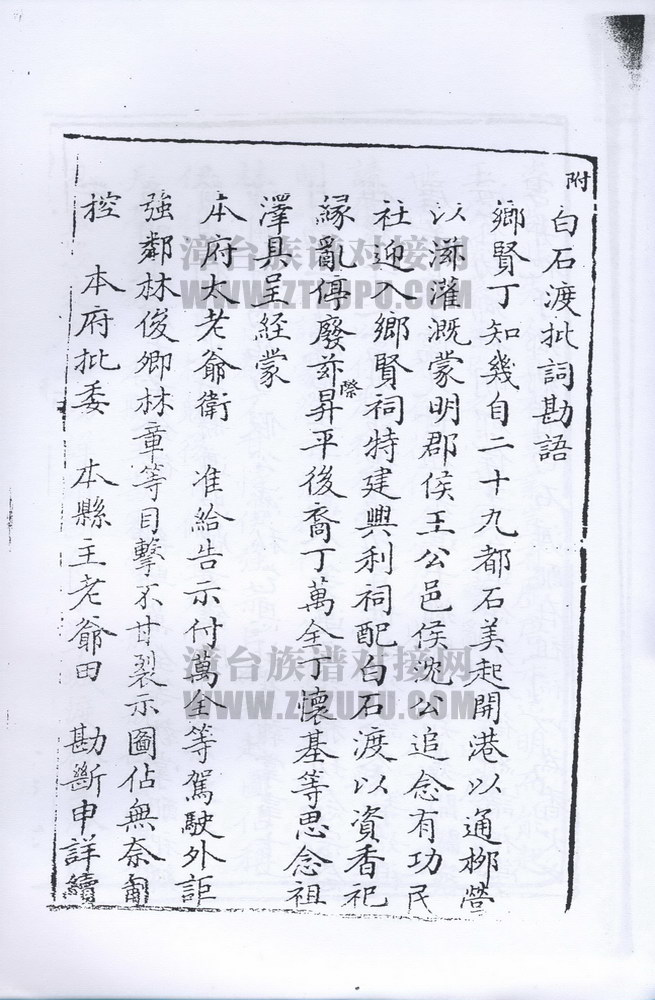 附
白石渡批詞勘語
鄉賢丁知幾自二十九都石美起開港以通柳營
以滋灌溉蒙明郡侯王公邑侯沈公追念有功民
社迎入鄉賢祠特建興利祠配白石渡以資香祀
緣亂停廢茲際昇平後裔丁萬全丁懷基等思念祖
澤具呈經蒙
本府太老爺衛 准給告示付萬全等駕駛外詎
強鄰林俊卿林章等目擊不甘裂示圖佔無奈匍
控 本府批委 本縣主老爺田 勘斷申詳續
漳台族谱对接网
WWW.ZTZUPU.COM
漳台族谱对接网
WWW.ZTZUPU.COM